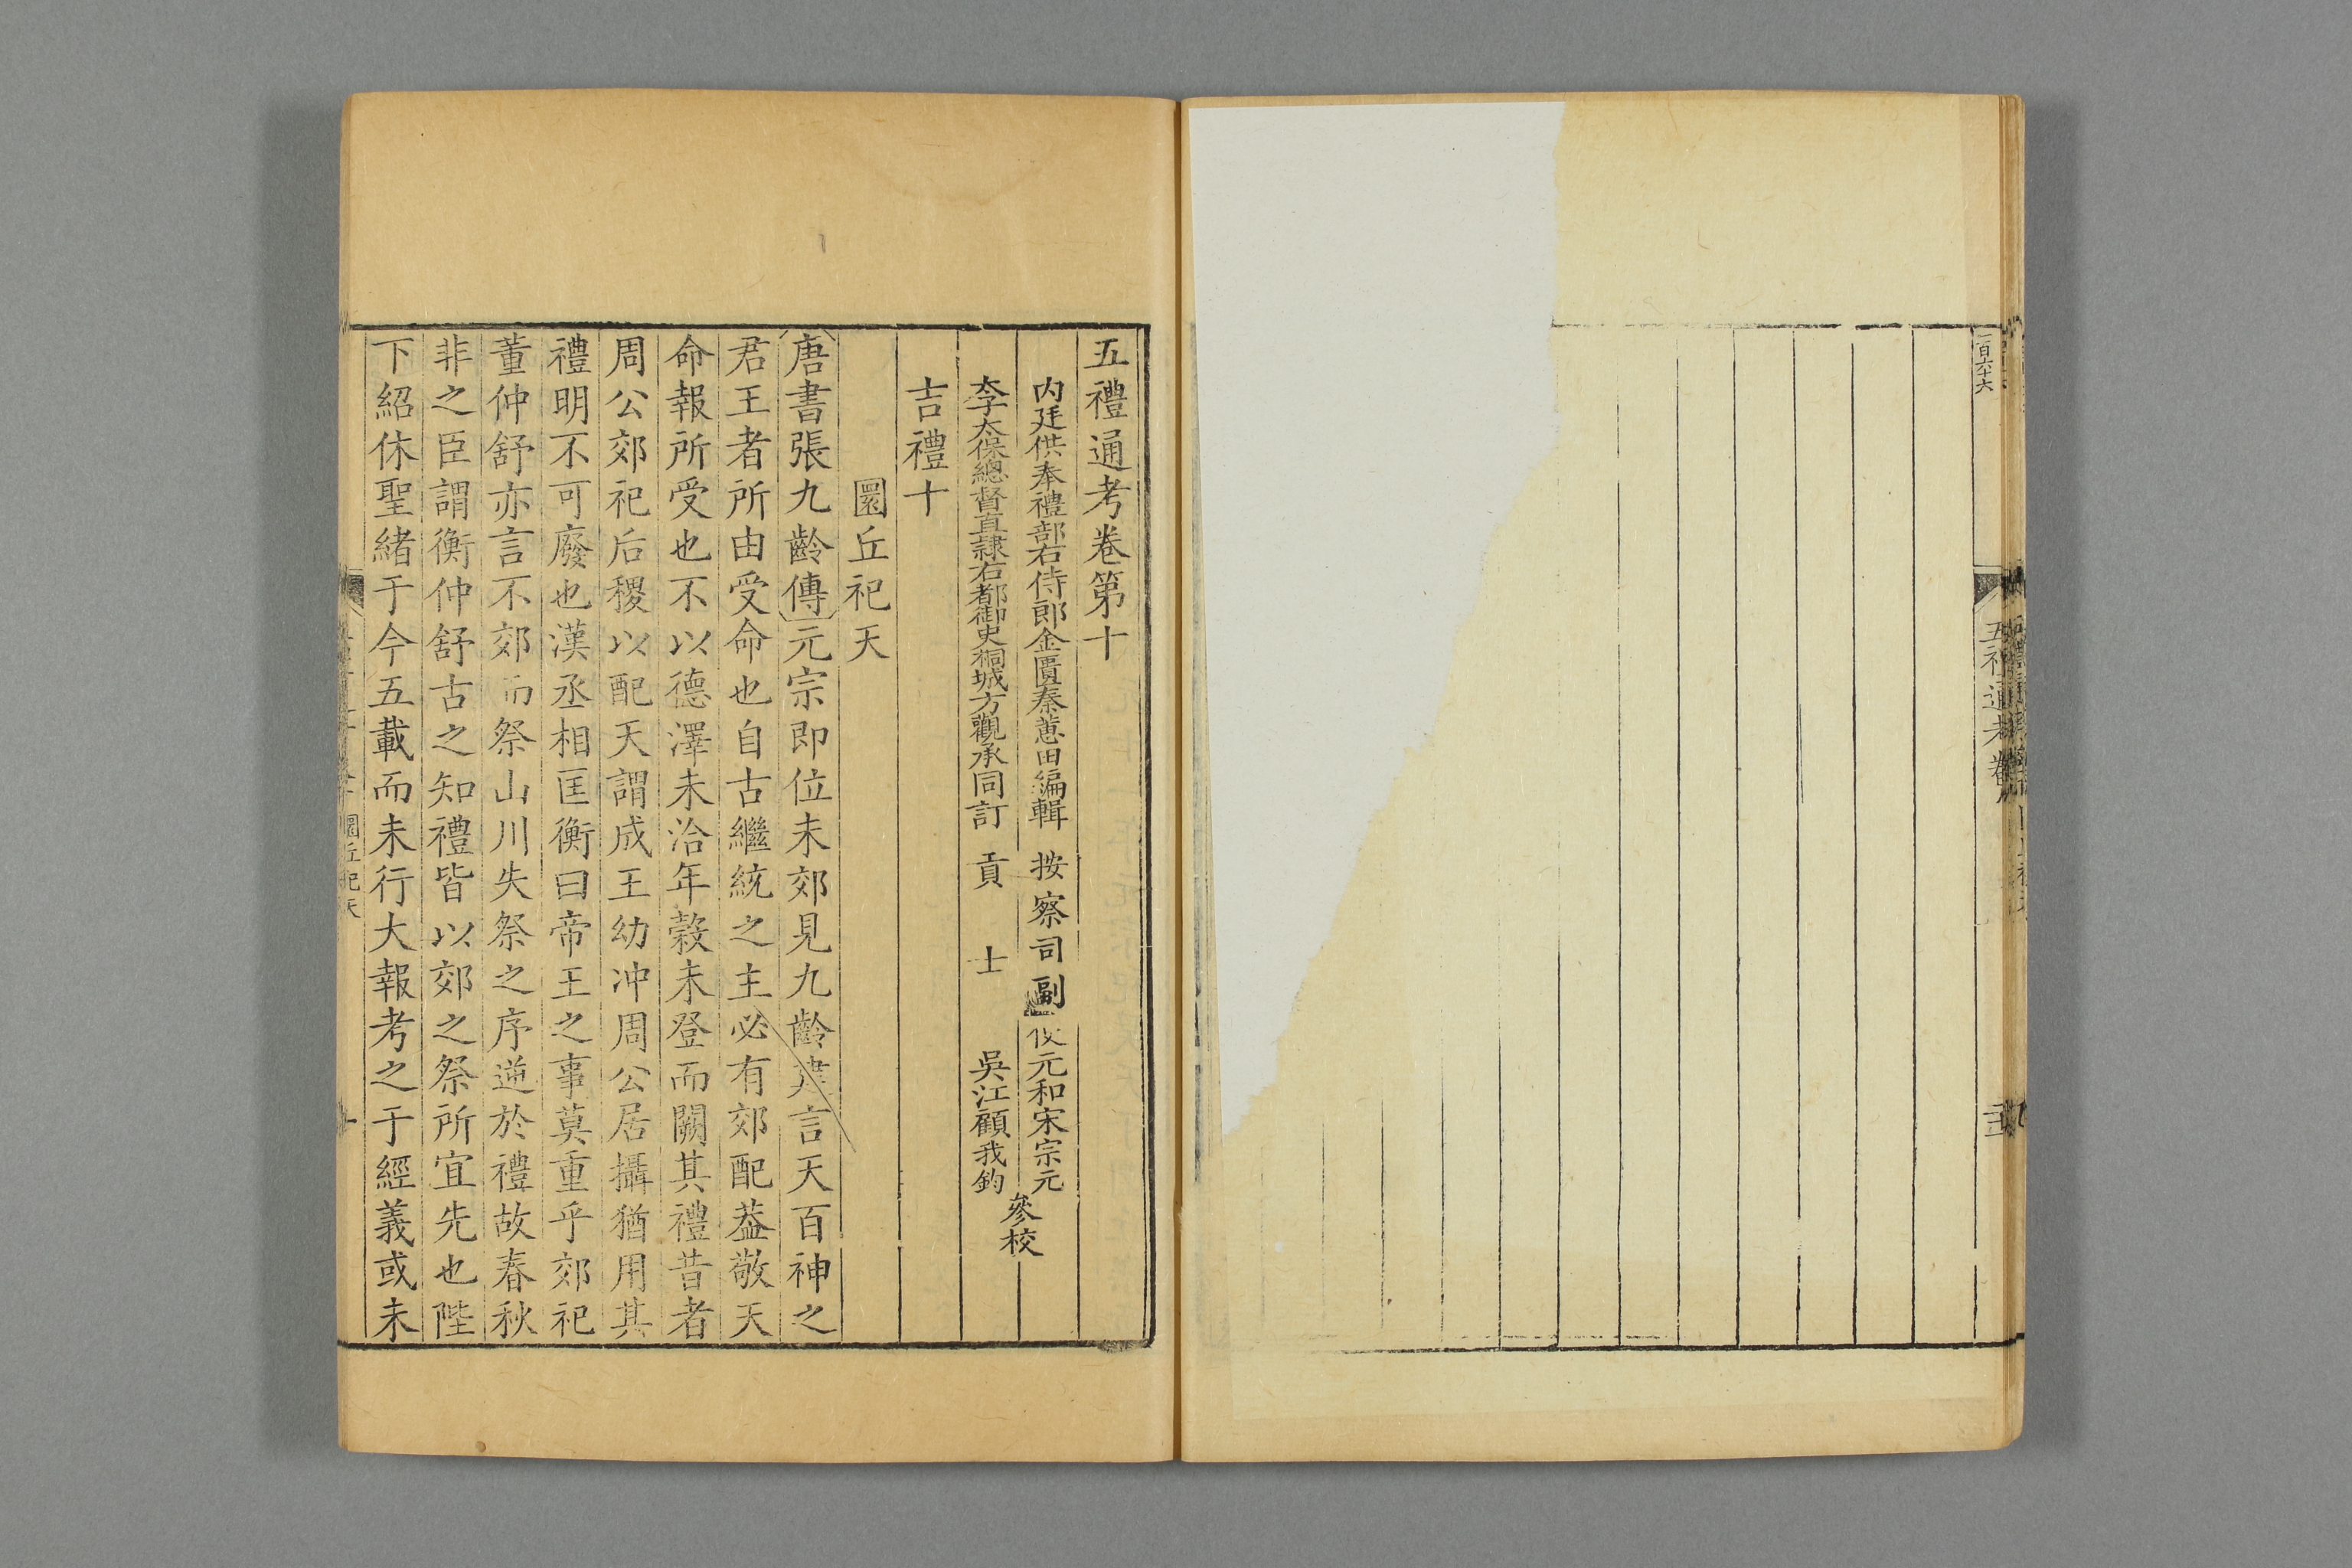 一百六十六
五禮通考卷
五禮通考卷第十
内廷供奉禮部右侍郎金匱秦蕙田編輯 按察司副使元和宋宗元
李太保總督直隸右都御史桐城方觀承同訂 貢士 吳江顧我鈞
參校
吉禮十
圜丘祀天
唐書張九齡傳元宗即位未郊見九齡建言天百神之
君王者所由受命也自古繼統之主必有郊配葢敬天
命報所受也不以德澤未洽年榖未登而闕其禮昔者
周公郊祀后稷以配天謂成王幼冲周公居攝猶用其
禮明不可廢也漢丞相匡衡曰帝王之事莫重乎郊祀
董仲舒亦言不郊而祭山川失祭之序逆於禮故春秋
非之臣謂衡仲舒古之知禮皆以郊之祭所宜先也陛
下紹休聖緒于今五載而未行大報考之于經義或未
圜丘祀天